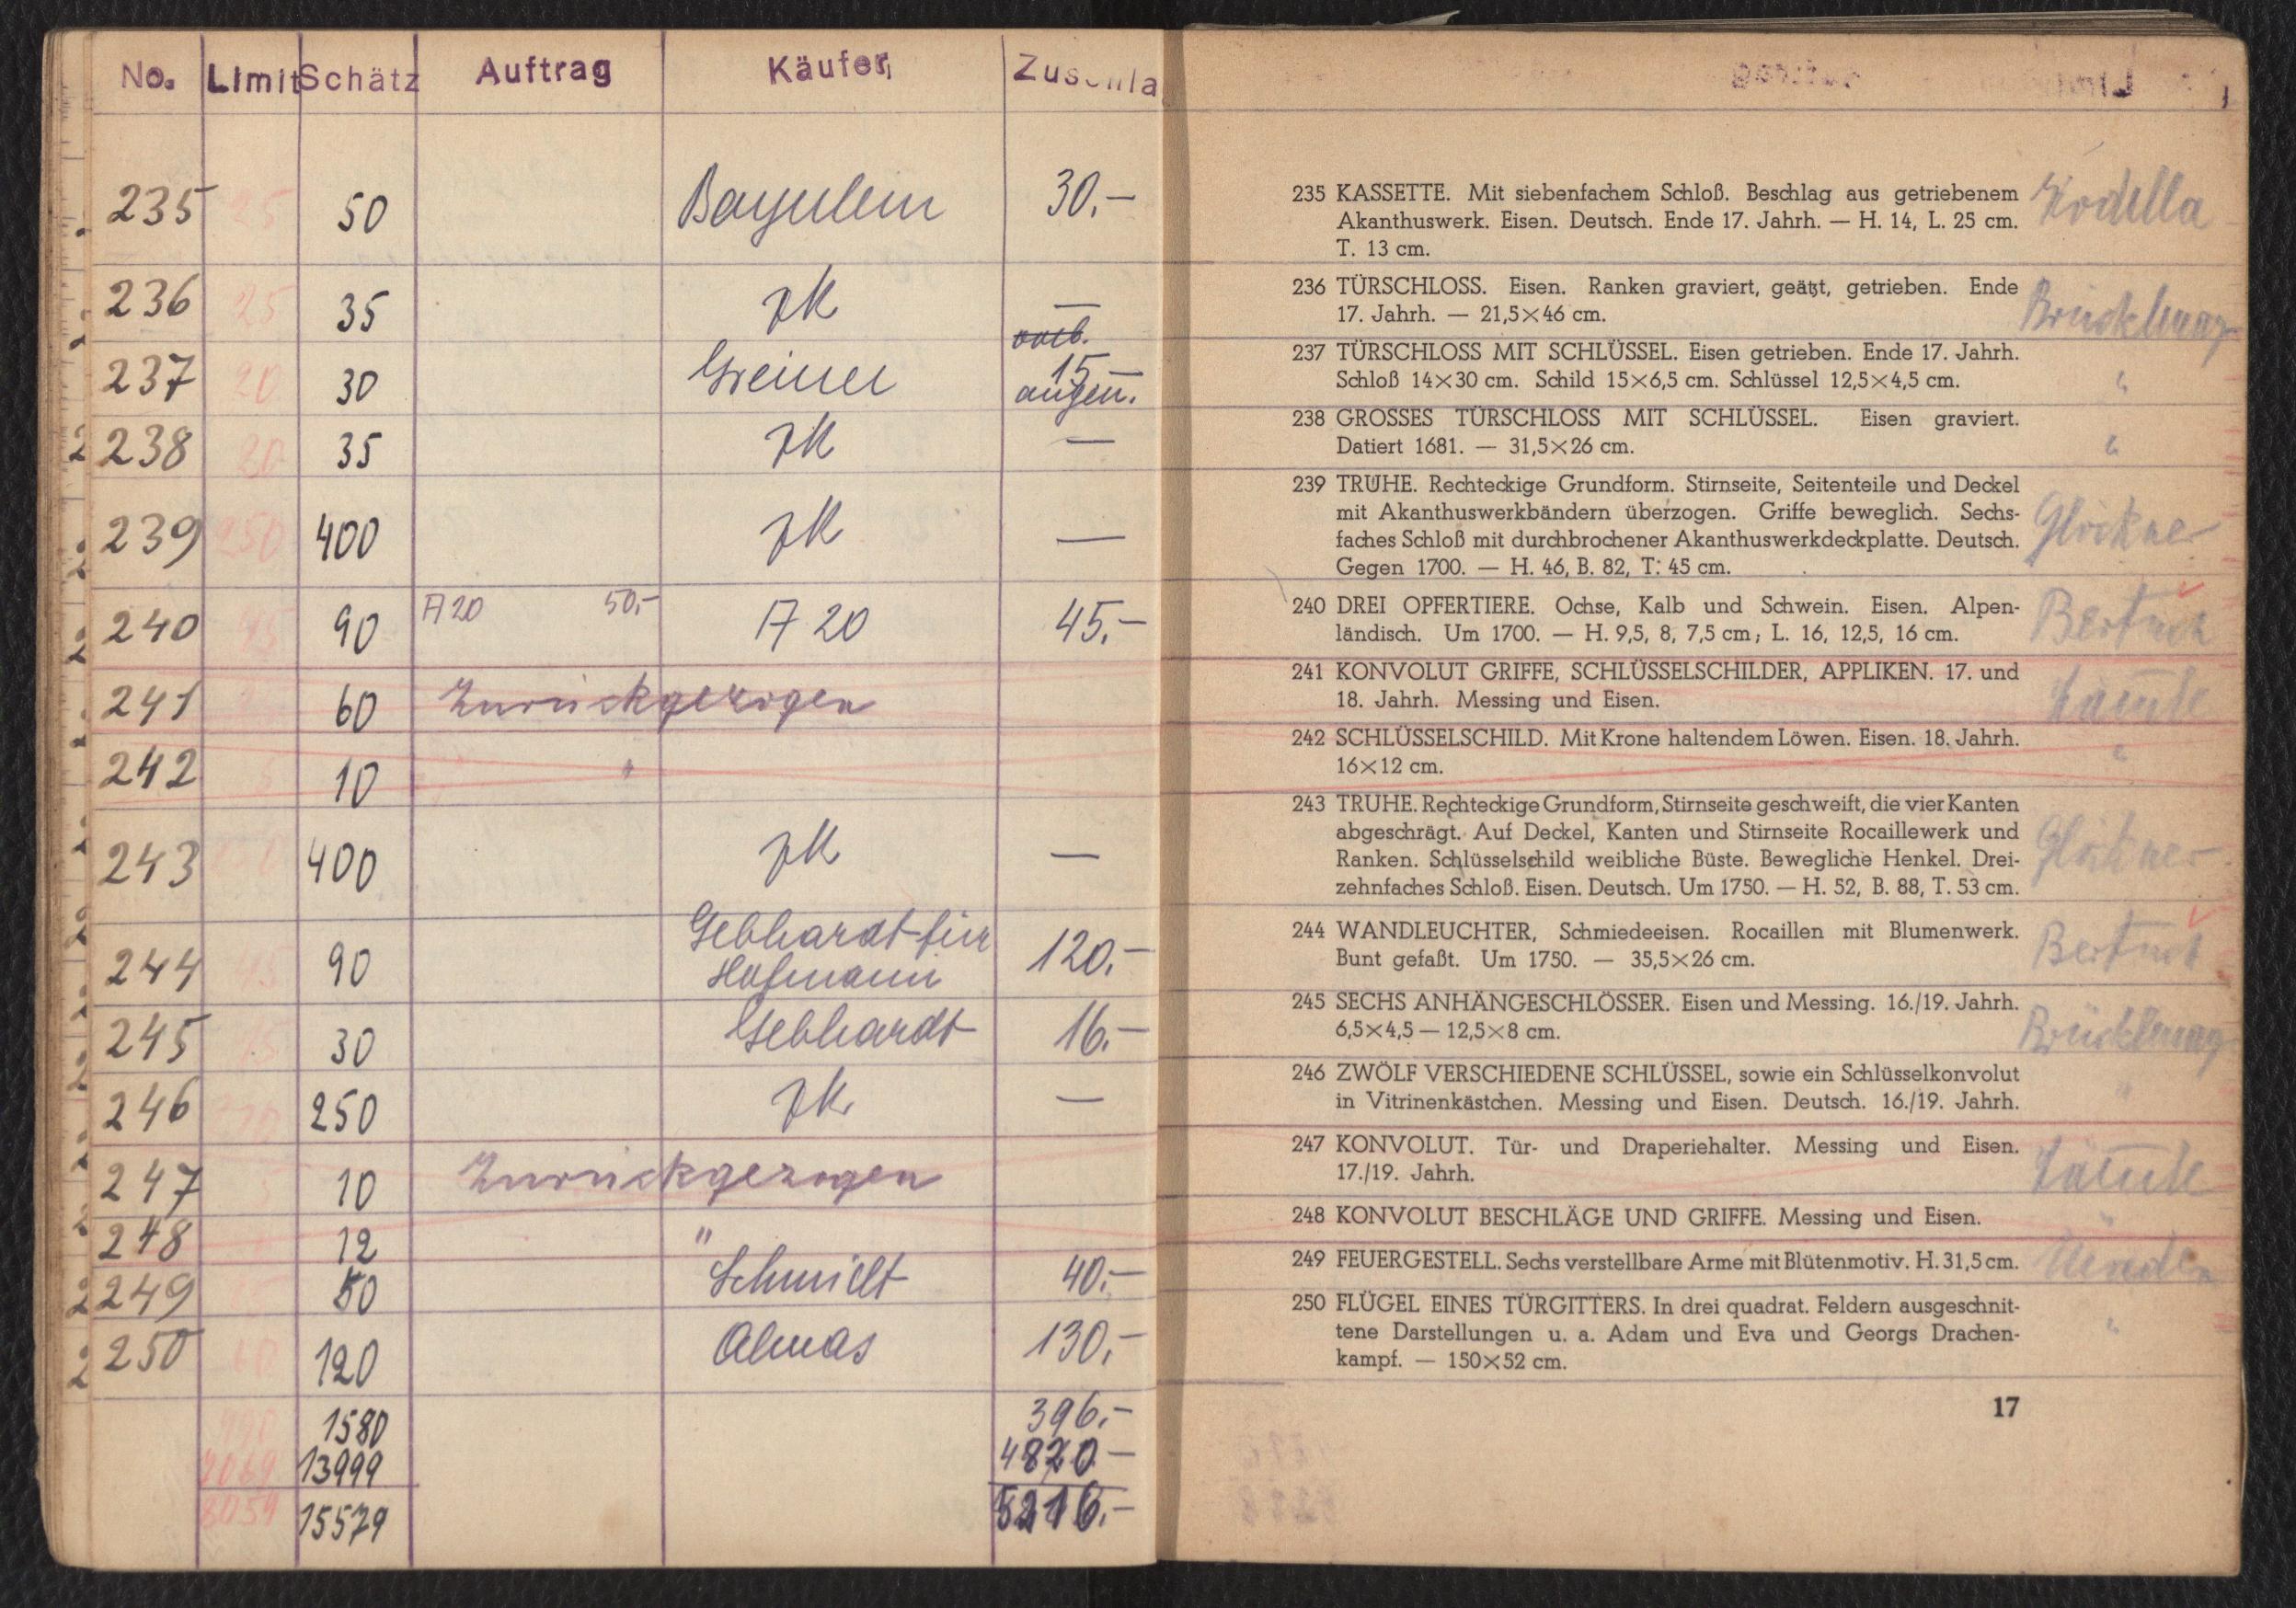 No. Limit Schätz Auftrag Käufer Zuschla
235 25 50 30.-
236 25 35 —
vorb.
237 20 30 Greiner 15.—
238 20 35 —
239 250 400 —
240 45 90 A 20 50,- A 20 45.-
241 60 Zurückgezogen
242 5 10 "
243 400 —
244 45 90 Gebhardt für
Hofmann 120.-
245 15 30 Gebhardt 16.-
246 250 —
247 5 10 Zurückgezogen
248 12 "
249 50 Schmidt 40.-
250 60 120 Almas 130.-
990 1580 396.-
7069 13999 4820.-
8059 15579 5216.-
235 KASSETTE. Mit siebenfachem Schloß. Beschlag aus getriebenem
Akanthuswerk. Eisen. Deutsch. Ende 17. Jahrh. — H. 14, L. 25 cm.
T. 13 cm.
236 TÜRSCHLOSS. Eisen. Ranken graviert, geätzt, getrieben. Ende
17. Jahrh. — 21,5×46 cm.
237 TÜRSCHLOSS MIT SCHLÜSSEL. Eisen getrieben. Ende 17. Jahrh.
Schloß 14×30 cm. Schild 15×6,5 cm. Schlüssel 12,5×4,5 cm. "
238 GROSSES TÜRSCHLOSS MIT SCHLÜSSEL. Eisen graviert.
Datiert 1681. — 31,5×26 cm. "
239 TRUHE. Rechteckige Grundform. Stirnseite, Seitenteile und Deckel
mit Akanthuswerkbändern überzogen. Griffe beweglich. Sechs-
faches Schloß mit durchbrochener Akanthuswerkdeckplatte. Deutsch. Glöckner
Gegen 1700. — H. 46, B. 82, T. 45 cm.
240 DREI OPFERTIERE. Ochse, Kalb und Schwein. Eisen. Alpen-
ländisch. Um 1700. — H. 9,5, 8, 7,5 cm; L. 16, 12,5, 16 cm.
241 KONVOLUT GRIFFE, SCHLÜSSELSCHILDER, APPLIKEN. 17. und
18. Jahrh. Messing und Eisen.
242 SCHLÜSSELSCHILD. Mit Krone haltendem Löwen. Eisen. 18. Jahrh.
16×12 cm. "
243 TRUHE. Rechteckige Grundform, Stirnseite geschweift, die vier Kanten
abgeschrägt. Auf Deckel, Kanten und Stirnseite Rocaillewerk und
Ranken. Schlüsselschild weibliche Büste. Bewegliche Henkel. Drei- Glöckner
zehnfaches Schloß. Eisen. Deutsch. Um 1750. — H. 52, B. 88, T. 53 cm.
244 WANDLEUCHTER, Schmiedeeisen. Rocaillen mit Blumenwerk.
Bunt gefaßt. Um 1750. — 35,5×26 cm.
245 SECHS ANHÄNGESCHLÖSSER. Eisen und Messing. 16./19. Jahrh.
6,5×4,5 — 12,5×8 cm.
246 ZWÖLF VERSCHIEDENE SCHLÜSSEL, sowie ein Schlüsselkonvolut
in Vitrinenkästchen. Messing und Eisen. Deutsch. 16./19. Jahrh. "
247 KONVOLUT. Tür- und Draperiehalter. Messing und Eisen.
17./19. Jahrh.
248 KONVOLUT BESCHLÄGE UND GRIFFE. Messing und Eisen. "
249 FEUERGESTELL. Sechs verstellbare Arme mit Blütenmotiv. H. 31,5 cm.
250 FLÜGEL EINES TÜRGITTERS. In drei quadrat. Feldern ausgeschnit-
tene Darstellungen u. a. Adam und Eva und Georgs Drachen- "
kampf. — 150×52 cm.
17